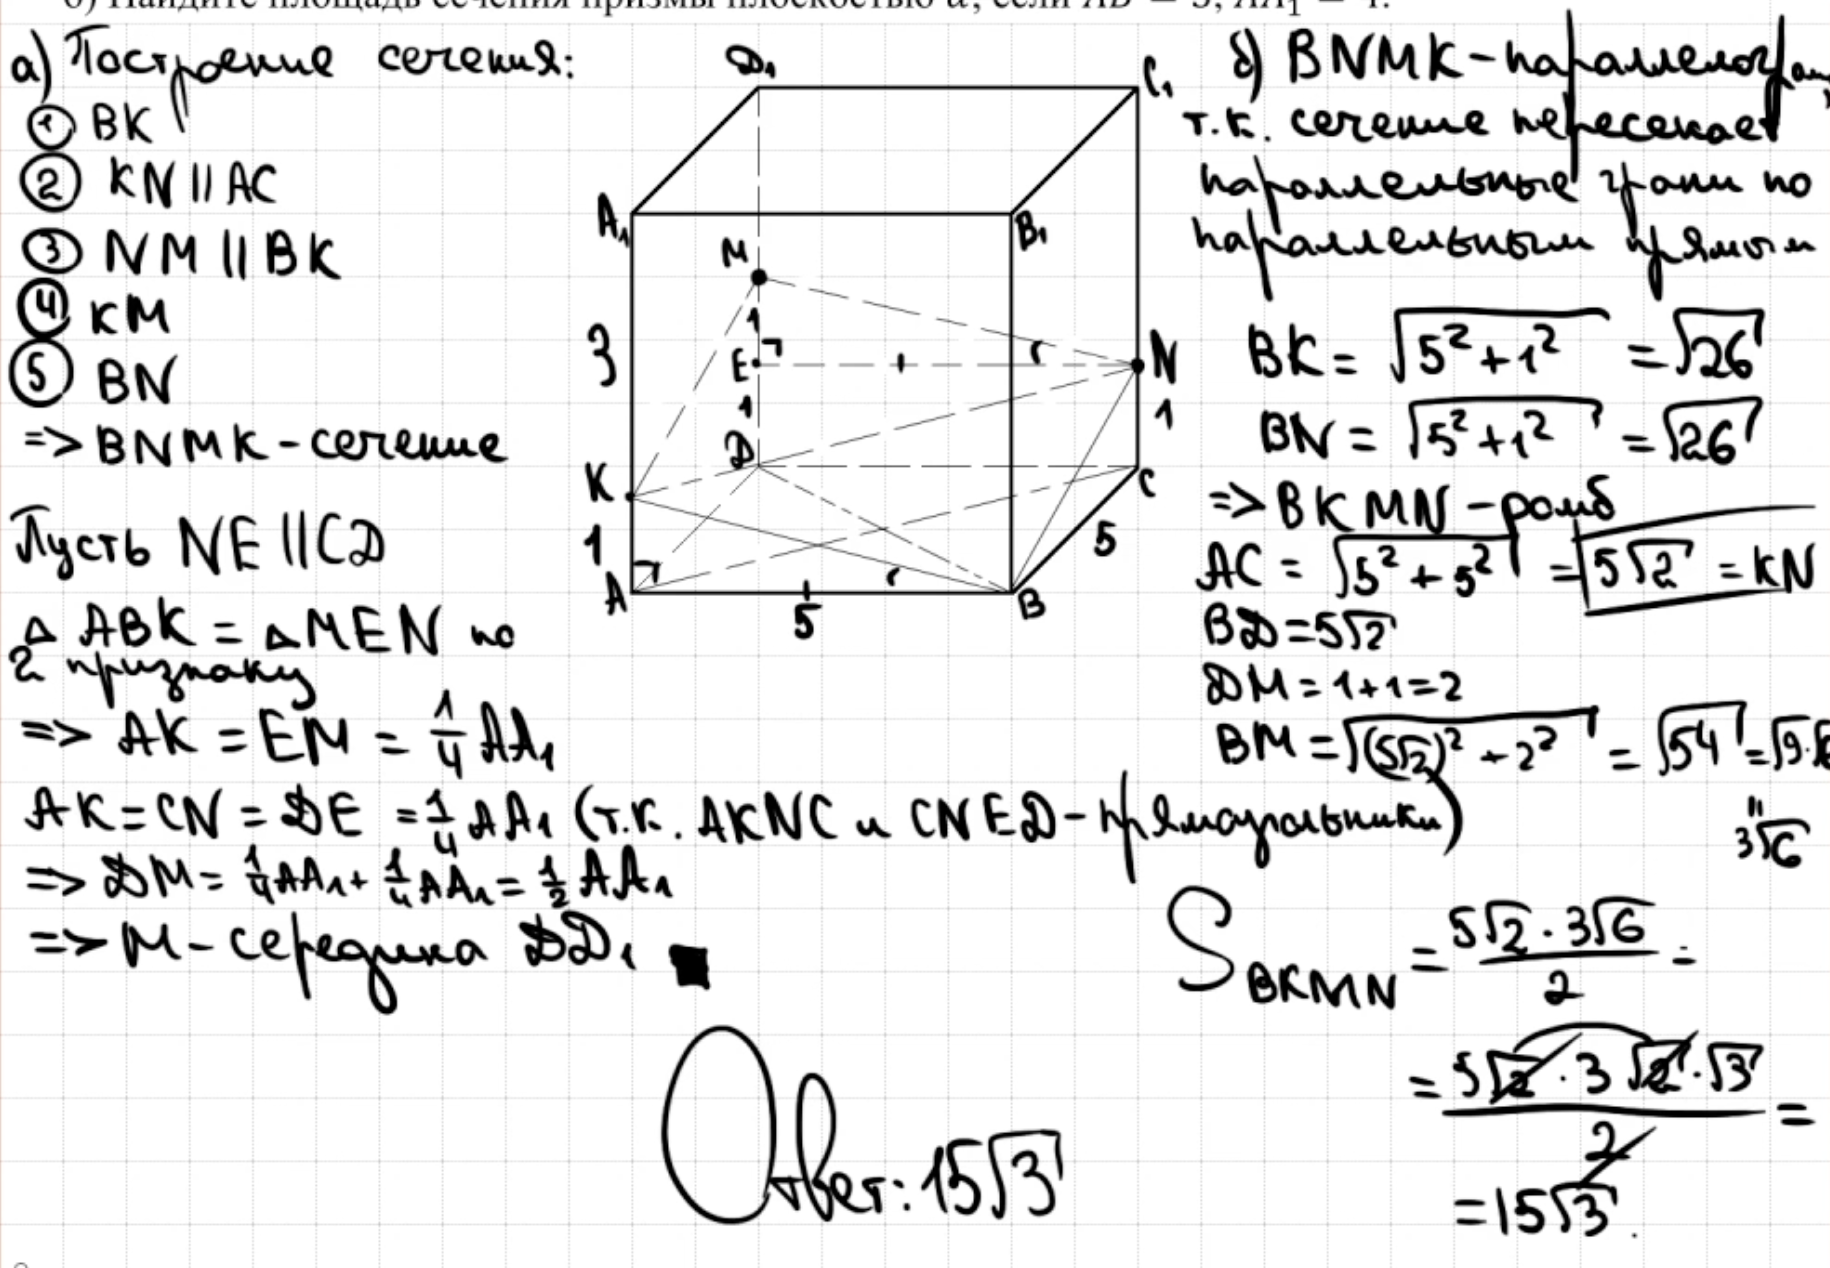 б) Найдите площадь сечения призмы плоскостью α, если AB = 5, AA₁ = 4.
а) Построение сечения:
① BK
② KN || AC
③ NM || BK
④ KM
⑤ BN
=> BNMK - сечение
Пусть NE || CD
△ ABK = △ MEN по
2 признаку
=> AK = EM = 1/4 AA₁
AK = CN = DE = 1/4 AA₁ (т.к. AKNC и CNED - прямоугольники)
=> DM = 1/4 AA₁ + 1/4 AA₁ = 1/2 AA₁
=> M - середина DD₁ ■
D₁
C₁
A₁
B₁
M
1
3
E
N
1
1
D
K
C
1
5
A
B
5
б) BNMK - параллелограмм,
т.к. сечение пересекает
параллельные грани по
параллельным прямым
BK = √(5² + 1²) = √26
BN = √(5² + 1²) = √26
=> BKMN - ромб
AC = √(5² + 5²) = 5√2 = KN
BD = 5√2
DM = 1 + 1 = 2
BM = √((5√2)² + 2²) = √54 = √9·6
"
3√6
S BKMN = (5√2 · 3√6)/2 =
= (5√2 · 3√2 · √3)/2 =
= 15√3.
Ответ: 15√3